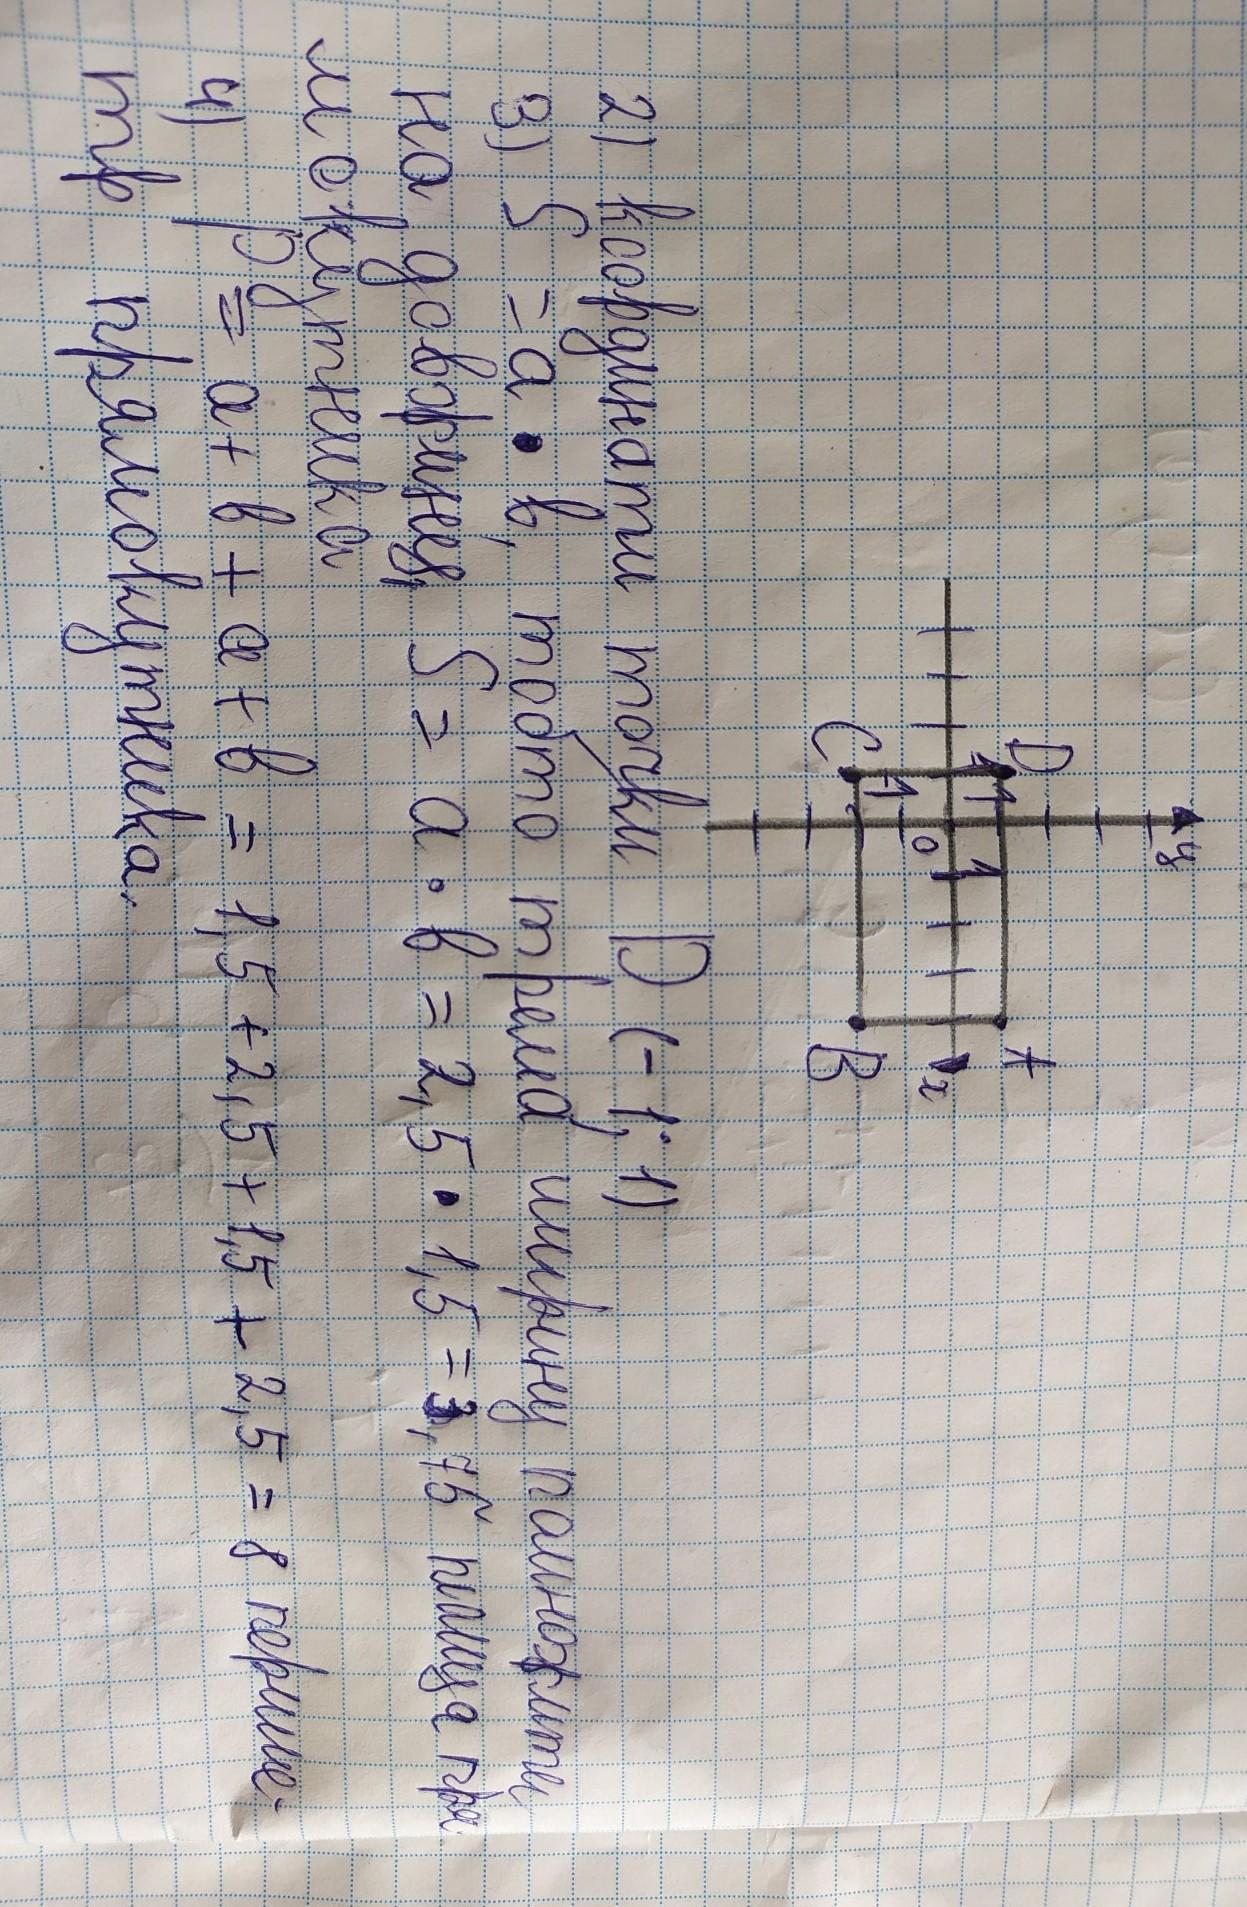 y
D
A
1
1
0
x
-1
C
B
2) коордунати точки D (-1; 1)
3) S = a • b, тобто треба ширину памножити
на довжину, S = a • b = 2,5 • 1,5 = 3,75 площа пря
мокутника
4) p = a + b + a + b = 1,5 + 2,5 + 1,5 + 2,5 = 8 периме-
тр прямокутника.